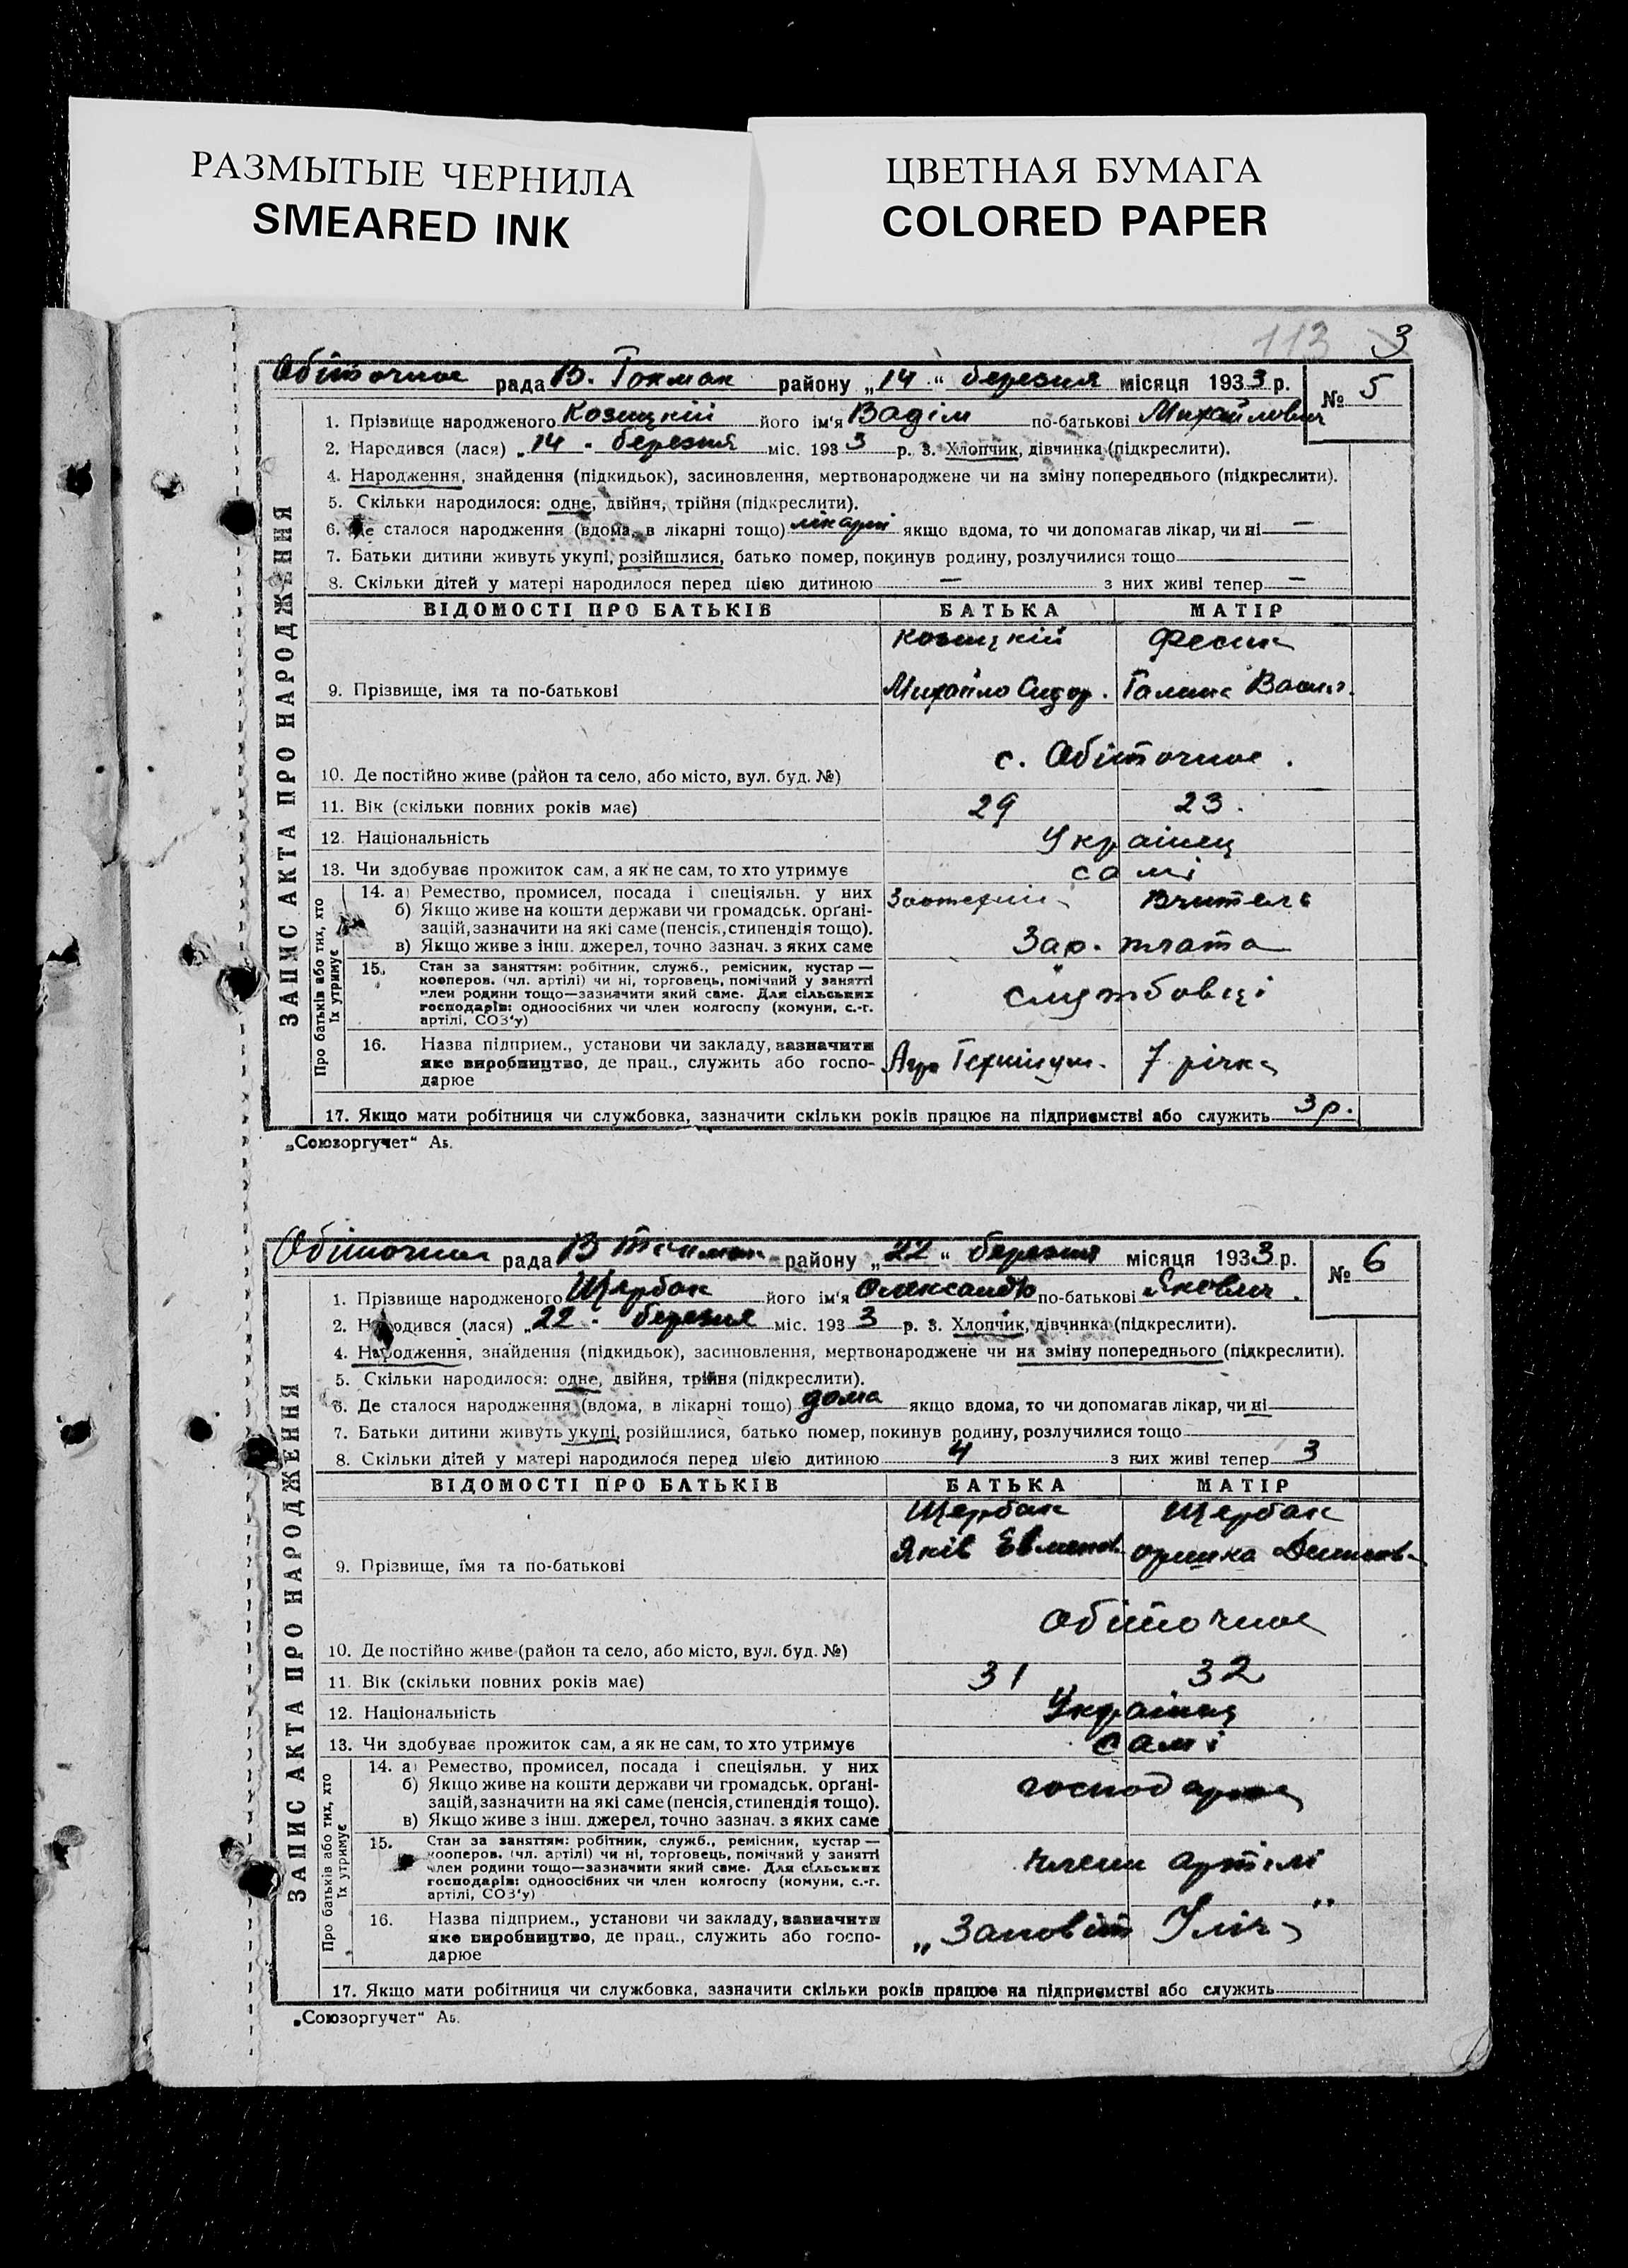 РАЗМЫТЫЕ ЧЕРНИЛА
SMEARED INK
ЦВЕТНАЯ БУМАГА
COLORED PAPER
113 3
Обіточное рада В. Токмак району „14“ березня місяця 1933 р.
№ 5
ЗАПИС АКТА ПРО НАРОДЖЕННЯ
1. Прізвище народженого Козицкій його ім'я Вадім по-батькові Михайлович
2. Народився (лася) „14 - березня міс. 1933 р. 3. Хлопчик, дівчинка (підкреслити).
4. Народження, знайдення (підкидьок), засиновлення, мертвонароджене чи на зміну попереднього (підкреслити).
5. Скільки народилося: одне, двійня, трійня (підкреслити).
6. Де сталося народження (вдома, в лікарні тощо) лікарні якщо вдома, то чи допомагав лікар, чи ні —
7. Батьки дитини живуть укупі, розійшлися, батько помер, покинув родину, розлучилися тощо
8. Скільки дітей у матері народилося перед цією дитиною — з них живі тепер —
ВІДОМОСТІ ПРО БАТЬКІВ БАТЬКА МАТІР
Козицкій
9. Прізвище, імя та по-батькові Михайло Сидор. Галина Васил.
10. Де постійно живе (район та село, або місто, вул. буд. №) с. Обіточное.
11. Вік (скільки повних років має) 29 23.
12. Національність Українец
13. Чи здобуває прожиток сам, а як не сам, то хто утримує самі
Про батьків або тих, хто їх утримує
14. а) Ремество, промисел, посада і спеціяльн. у них Вчитель
б) Якщо живе на кошти держави чи громадськ. організацій, зазначити на які саме (пенсія, стипендія тощо).
в) Якщо живе з інш. джерел, точно зазнач. з яких саме Зар. плата
15. Стан за заняттям: робітник, служб., ремісник, кустар —
кооперов. (чл. артілі) чи ні, торговець, помічний у занятті
член родини тощо—зазначити який саме. Для сільських
господарів: одноосібних чи член колгоспу (комуни, с.-г.
артілі, СОЗ'у) службовці
16. Назва підприєм., установи чи закладу, зазначити
яке виробництво, де прац., служить або госпо- Агро Технікум. 7 річка
дарює
17. Якщо мати робітниця чи службовка, зазначити скільки років працює на підприємстві або служить 3 р.
„Союзоргучет“ Аь.
Обіточне рада В Токмак району „22“ березня місяця 1933 р.
№ 6
ЗАПИС АКТА ПРО НАРОДЖЕННЯ
1. Прізвище народженого Щербак його ім'я Олександр по-батькові Якович.
2. Народився (лася) „22 - березня міс. 1933 р. 3. Хлопчик, дівчинка (підкреслити).
4. Народження, знайдення (підкидьок), засиновлення, мертвонароджене чи на зміну попереднього (підкреслити).
5. Скільки народилося: одне, двійня, трійня (підкреслити).
6. Де сталося народження (вдома, в лікарні тощо) дома якщо вдома, то чи допомагав лікар, чи ні
7. Батьки дитини живуть укупі, розійшлися, батько помер, покинув родину, розлучилися тощо
8. Скільки дітей у матері народилося перед цією дитиною 4 з них живі тепер 3
ВІДОМОСТІ ПРО БАТЬКІВ БАТЬКА МАТІР
Щербак Щербак
9. Прізвище, імя та по-батькові Яків Евменов. Оришка
10. Де постійно живе (район та село, або місто, вул. буд. №) Обіточное
11. Вік (скільки повних років має) 31 32
12. Національність Українец
13. Чи здобуває прожиток сам, а як не сам, то хто утримує самі
Про батьків або тих, хто їх утримує
14. а) Ремество, промисел, посада і спеціяльн. у них
б) Якщо живе на кошти держави чи громадськ. органі- господарюе
зацій, зазначити на які саме (пенсія, стипендія тощо).
в) Якщо живе з інш. джерел, точно зазнач. з яких саме
15. Стан за заняттям: робітник, служб., ремісник, кустар —
кооперов. (чл. артілі) чи ні, торговець, помічний у занятті
член родини тощо—зазначити який саме. Для сільських члени артілі
господарів: одноосібних чи член колгоспу (комуни, с.-г.
артілі, СОЗ'у)
16. Назва підприєм., установи чи закладу, зазначити
яке виробництво, де прац., служить або госпо- „Заповіт Ілліча"
дарює
17. Якщо мати робітниця чи службовка, зазначити скільки років працює на підприємстві або служить
„Союзоргучет“ Аь.